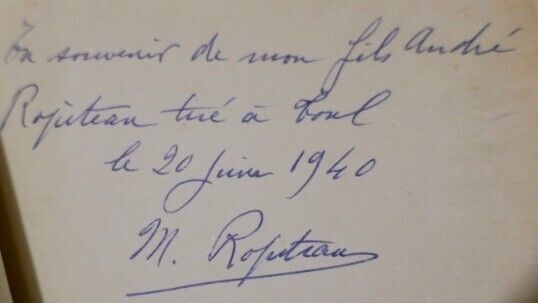 En souvenir de mon fils André
Ropiteau tué à Toul
le 20 Juin 1940
M. Ropiteau